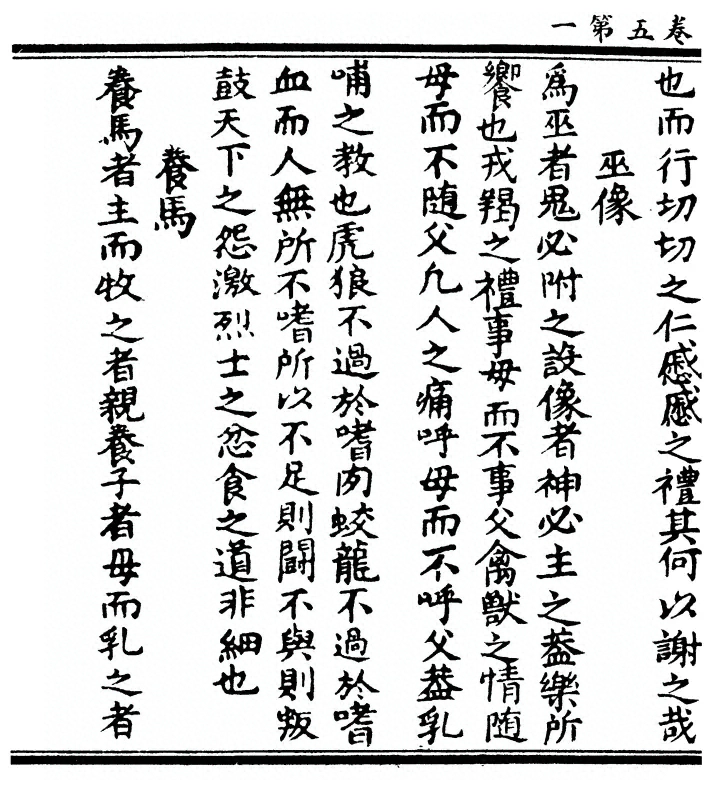 卷五第一
也而行切切之仁慼慼之禮其何以謝之哉
巫像
爲巫者鬼必附之設像者神必主之葢樂所
饗也戎羯之禮事母而不事父禽獸之情隨
母而不隨父凡人之痛呼母而不呼父葢乳
哺之教也虎狼不過於嗜肉蛟龍不過於嗜
血而人無所不嗜所以不足則鬭不與則叛
鼓天下之怨激烈士之忿食之道非細也
養馬
養馬者主而牧之者親養子者母而乳之者